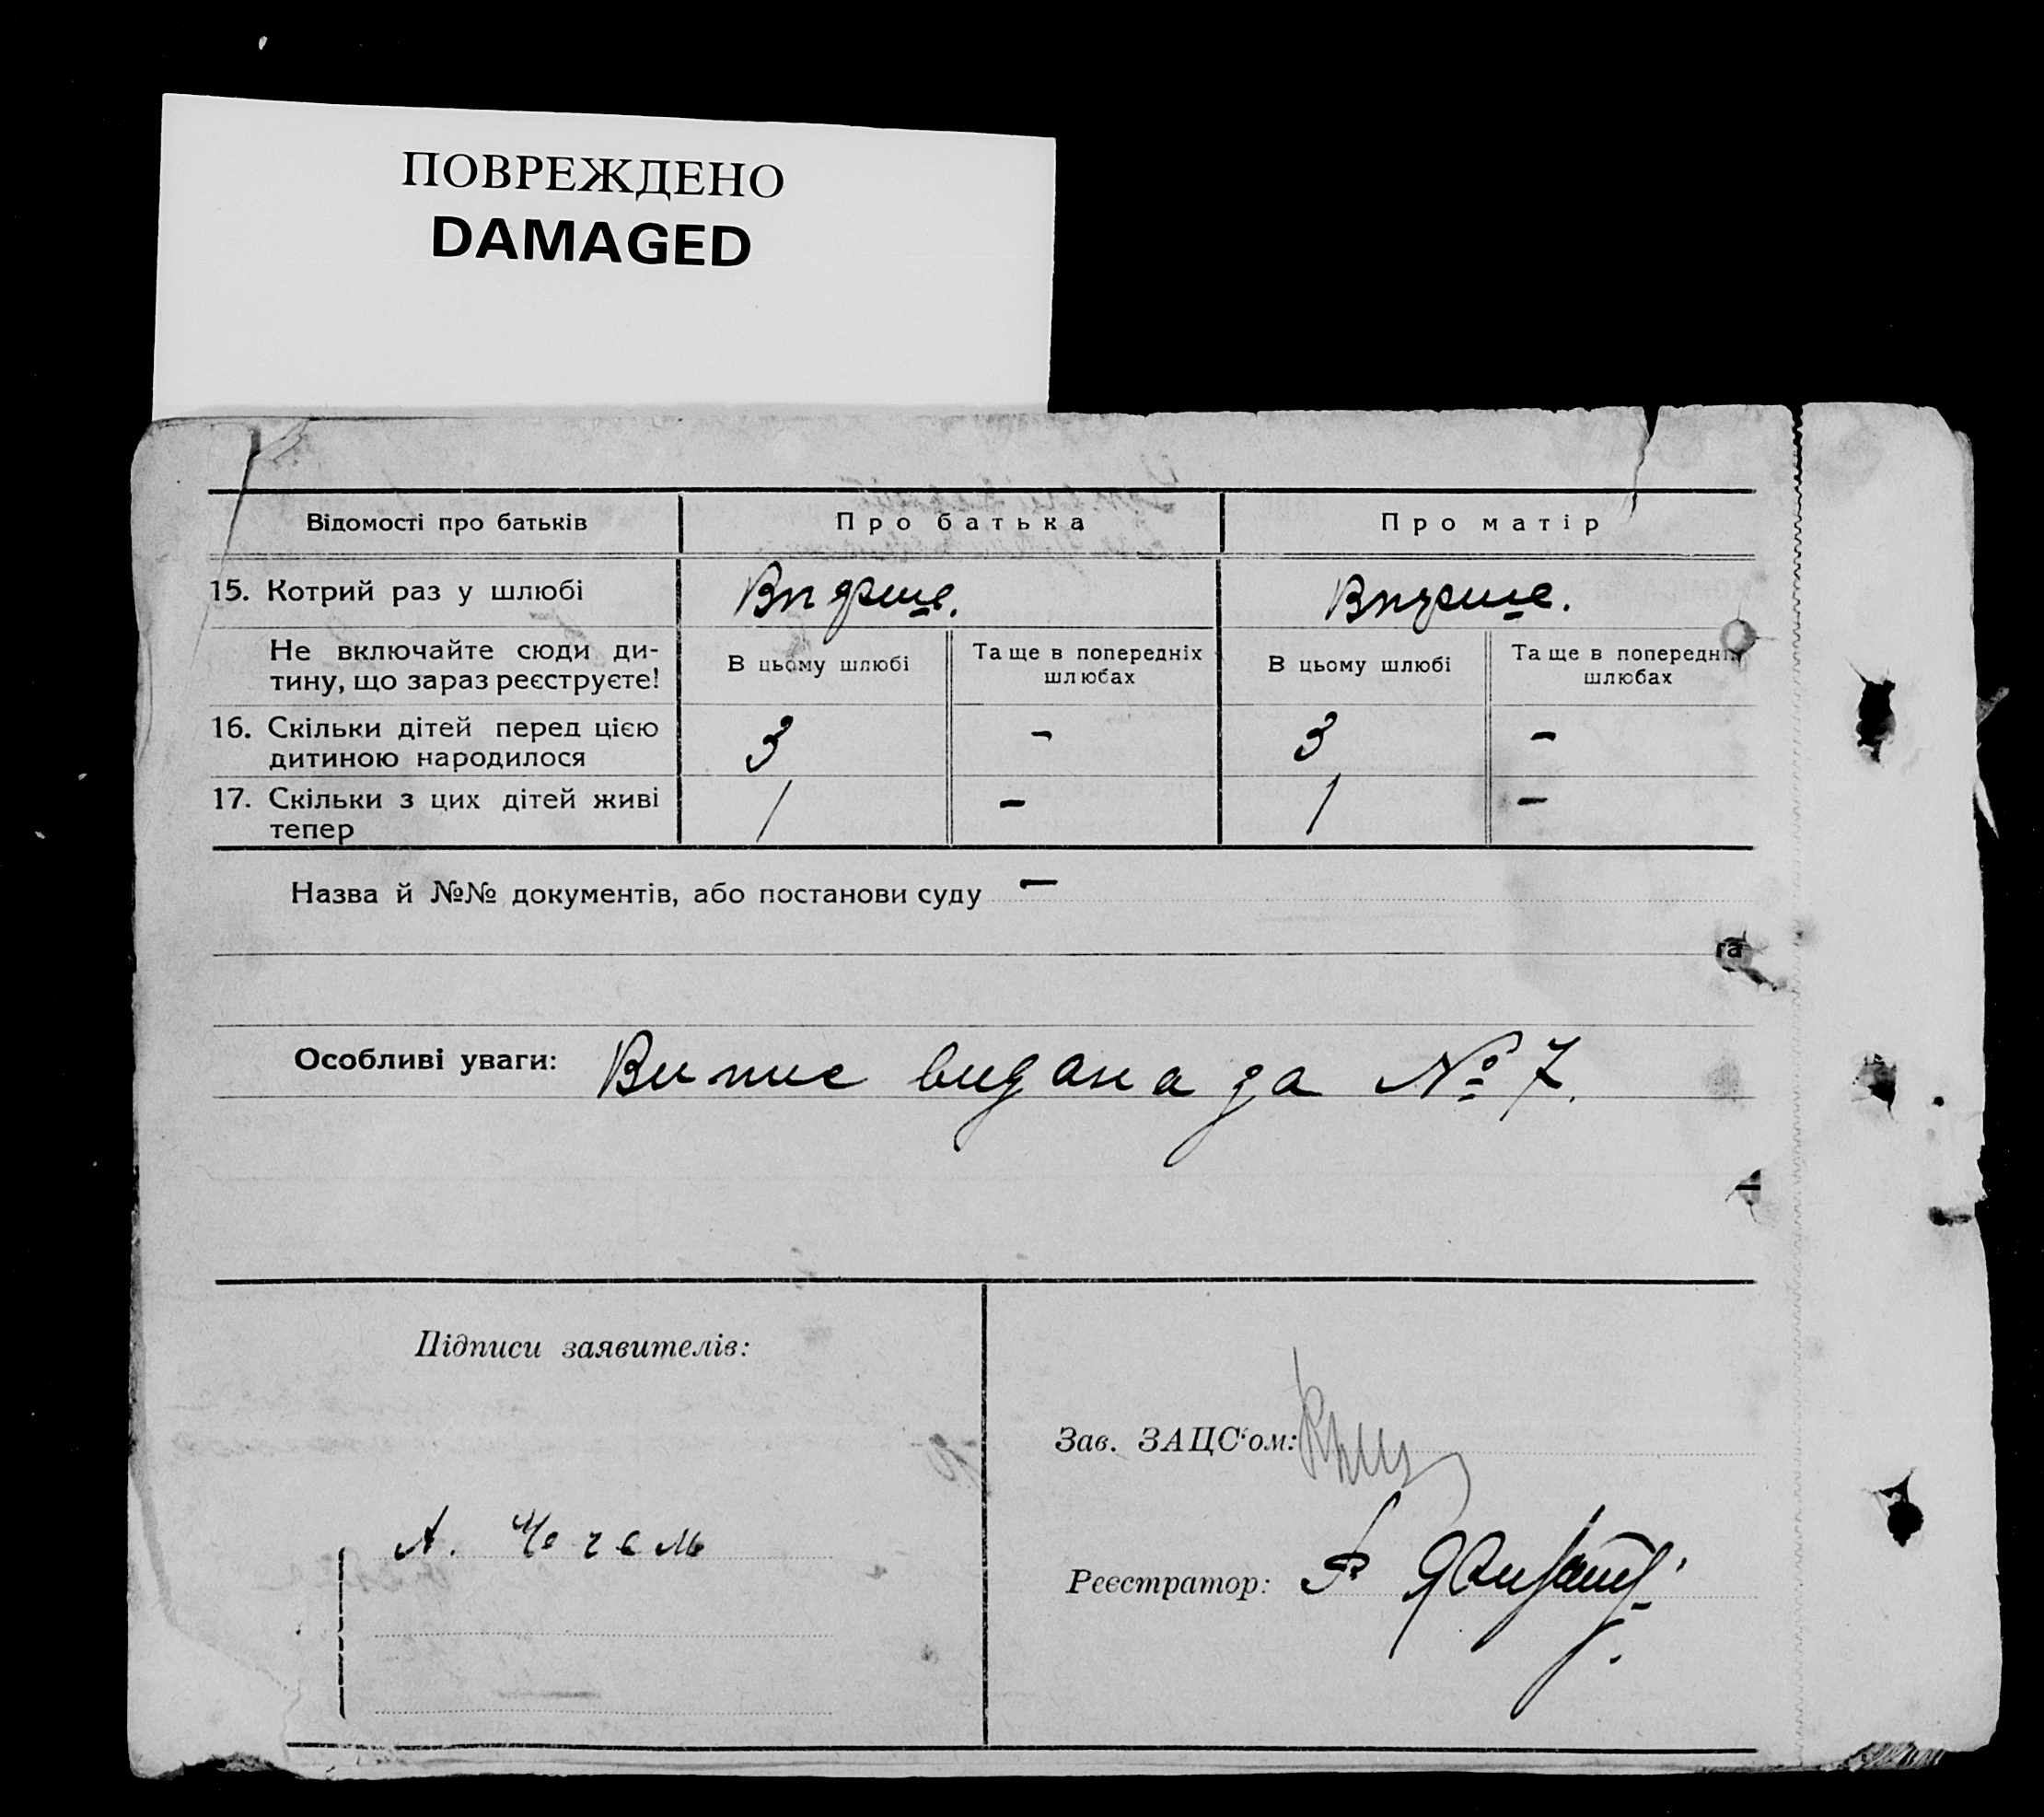 ПОВРЕЖДЕНО
DAMAGED
Відомості про батьків Про батька Про матір
15. Котрий раз у шлюбі Впдрше. Впдрше.
Не включайте сюди ди- В цьому шлюбі Та ще в попередніх В цьому шлюбі Та ще в попередніх
тину, що зараз реєструєте! шлюбах шлюбах
16. Скільки дітей перед цією 3 - 3 -
дитиною народилося
17. Скільки з цих дітей живі 1 - 1 -
тепер
Назва й №№ документів, або постанови суду —
та
Особливі уваги: Випис видана за № 7.
Підписи заявителів:
Зав. ЗАЦС'ом:
А.
Реєстратор: